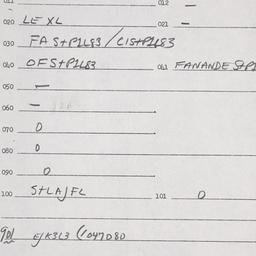 011 012 —
020 LE XL 021 —
030 FA S+P1L83 / CIS+P1L83
040 OFS+P1L83 041 FANANDE S+P1
050 —
060 —
070 0
080 0
090 0
100 S+LAJFL 101 0
901 EJK3L3 (1047080